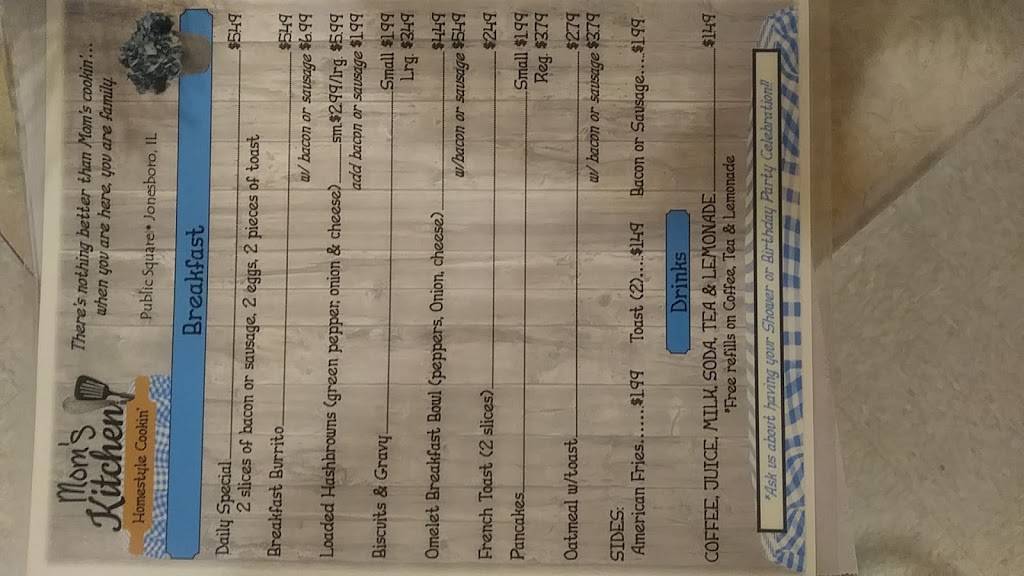 Mom's
Kitchen
Homestyle Cookin'
There's nothing better than Mom's cookin'...
when you are here, you are family
Public Square • Jonesboro, IL
Breakfast
Daily Special $5.49
2 slices of bacon or sausage, 2 eggs, 2 pieces of toast
Breakfast Burrito $5.49
w/ bacon or sausage $6.99
Loaded Hashbrowns (green pepper, onion & cheese) sm.$2.99/lrg. $5.99
add bacon or sausage $1.99
Biscuits & Gravy Small $1.99
Lrg. $3.49
Omelet Breakfast Bowl (peppers, Onion, cheese) $4.49
w/bacon or sausage $5.49
French Toast (2 slices) $2.49
Pancakes Small $1.99
Reg. $3.79
Oatmeal w/toast $2.79
w/ bacon or sausage $3.79
SIDES:
American Fries......$1.99 Toast (2)....$1.49 Bacon or Sausage....$1.99
Drinks
COFFEE, JUICE, MILK, SODA, TEA & LEMONADE $1.49
*Free refills on Coffee, Tea & Lemonade
*Ask us about having your Shower or Birthday Party Celebration!!